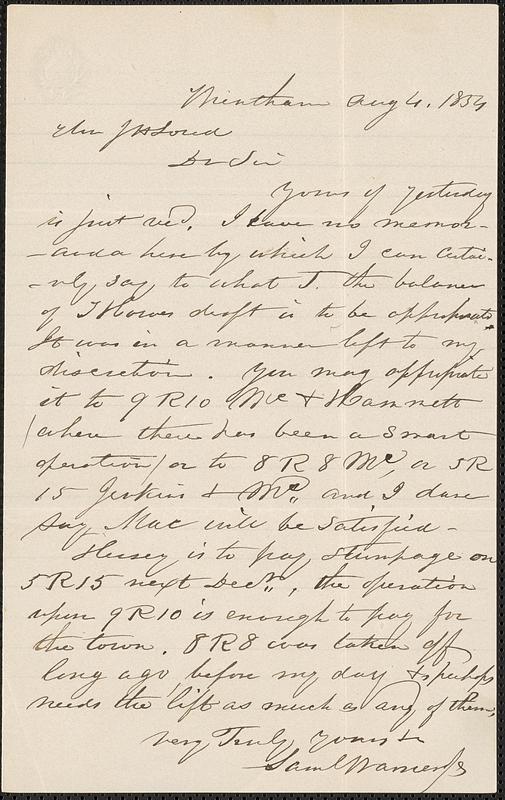 Wrentham Aug 4. 1854
Mr J H Loud
Dr Sir
Yours of yesterday
is just recd. I have no memor-
-anda here by which I can certai-
-nly say to what T. the balance
of T Howes draft is to be appropriate
It was in a manner left to my
discretion. You may appropriate
it to 9 R 10 Mc & Hammett
(where there has been a smart
operation) or to 8 R 8 Mc, or 5 R
15 Jenkins & Mc, and I dare
say Mac will be satisfied -
Hersey is to pay stumpage on
5 R 15 next Decr, the operation
upon 9 R 10 is enough to pay for
the town. 8 R 8 was taken off
long ago, before my day & perhaps
needs the lift as much as any of them,
very Truly Yours &c
Saml Warner Jr